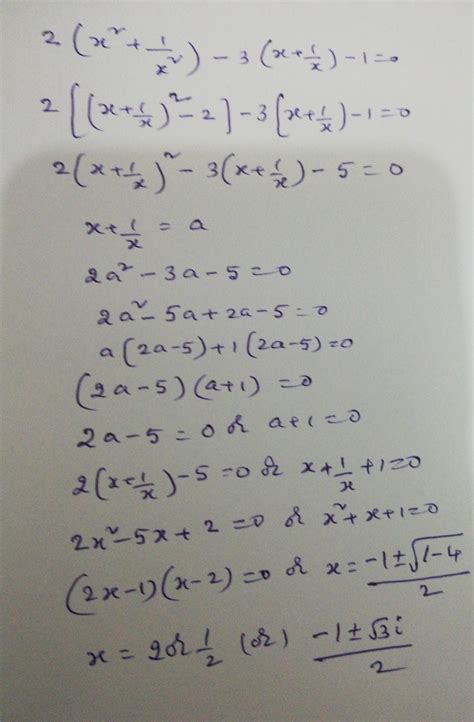 2(x² + 1/x²) - 3(x + 1/x) - 1 = 0
2[(x + 1/x)² - 2] - 3[x + 1/x) - 1 = 0
2(x + 1/x)² - 3(x + 1/x) - 5 = 0
x + 1/x = a
2a² - 3a - 5 = 0
2a² - 5a + 2a - 5 = 0
a(2a - 5) + 1(2a - 5) = 0
(2a - 5)(a + 1) = 0
2a - 5 = 0 or a + 1 = 0
2(x + 1/x) - 5 = 0 or x + 1/x + 1 = 0
2x² - 5x + 2 = 0 or x² + x + 1 = 0
(2x - 1)(x - 2) = 0 or x = (-1 ± √(1 - 4))/2
x = 2 or 1/2 (or) (-1 ± √3 i)/2